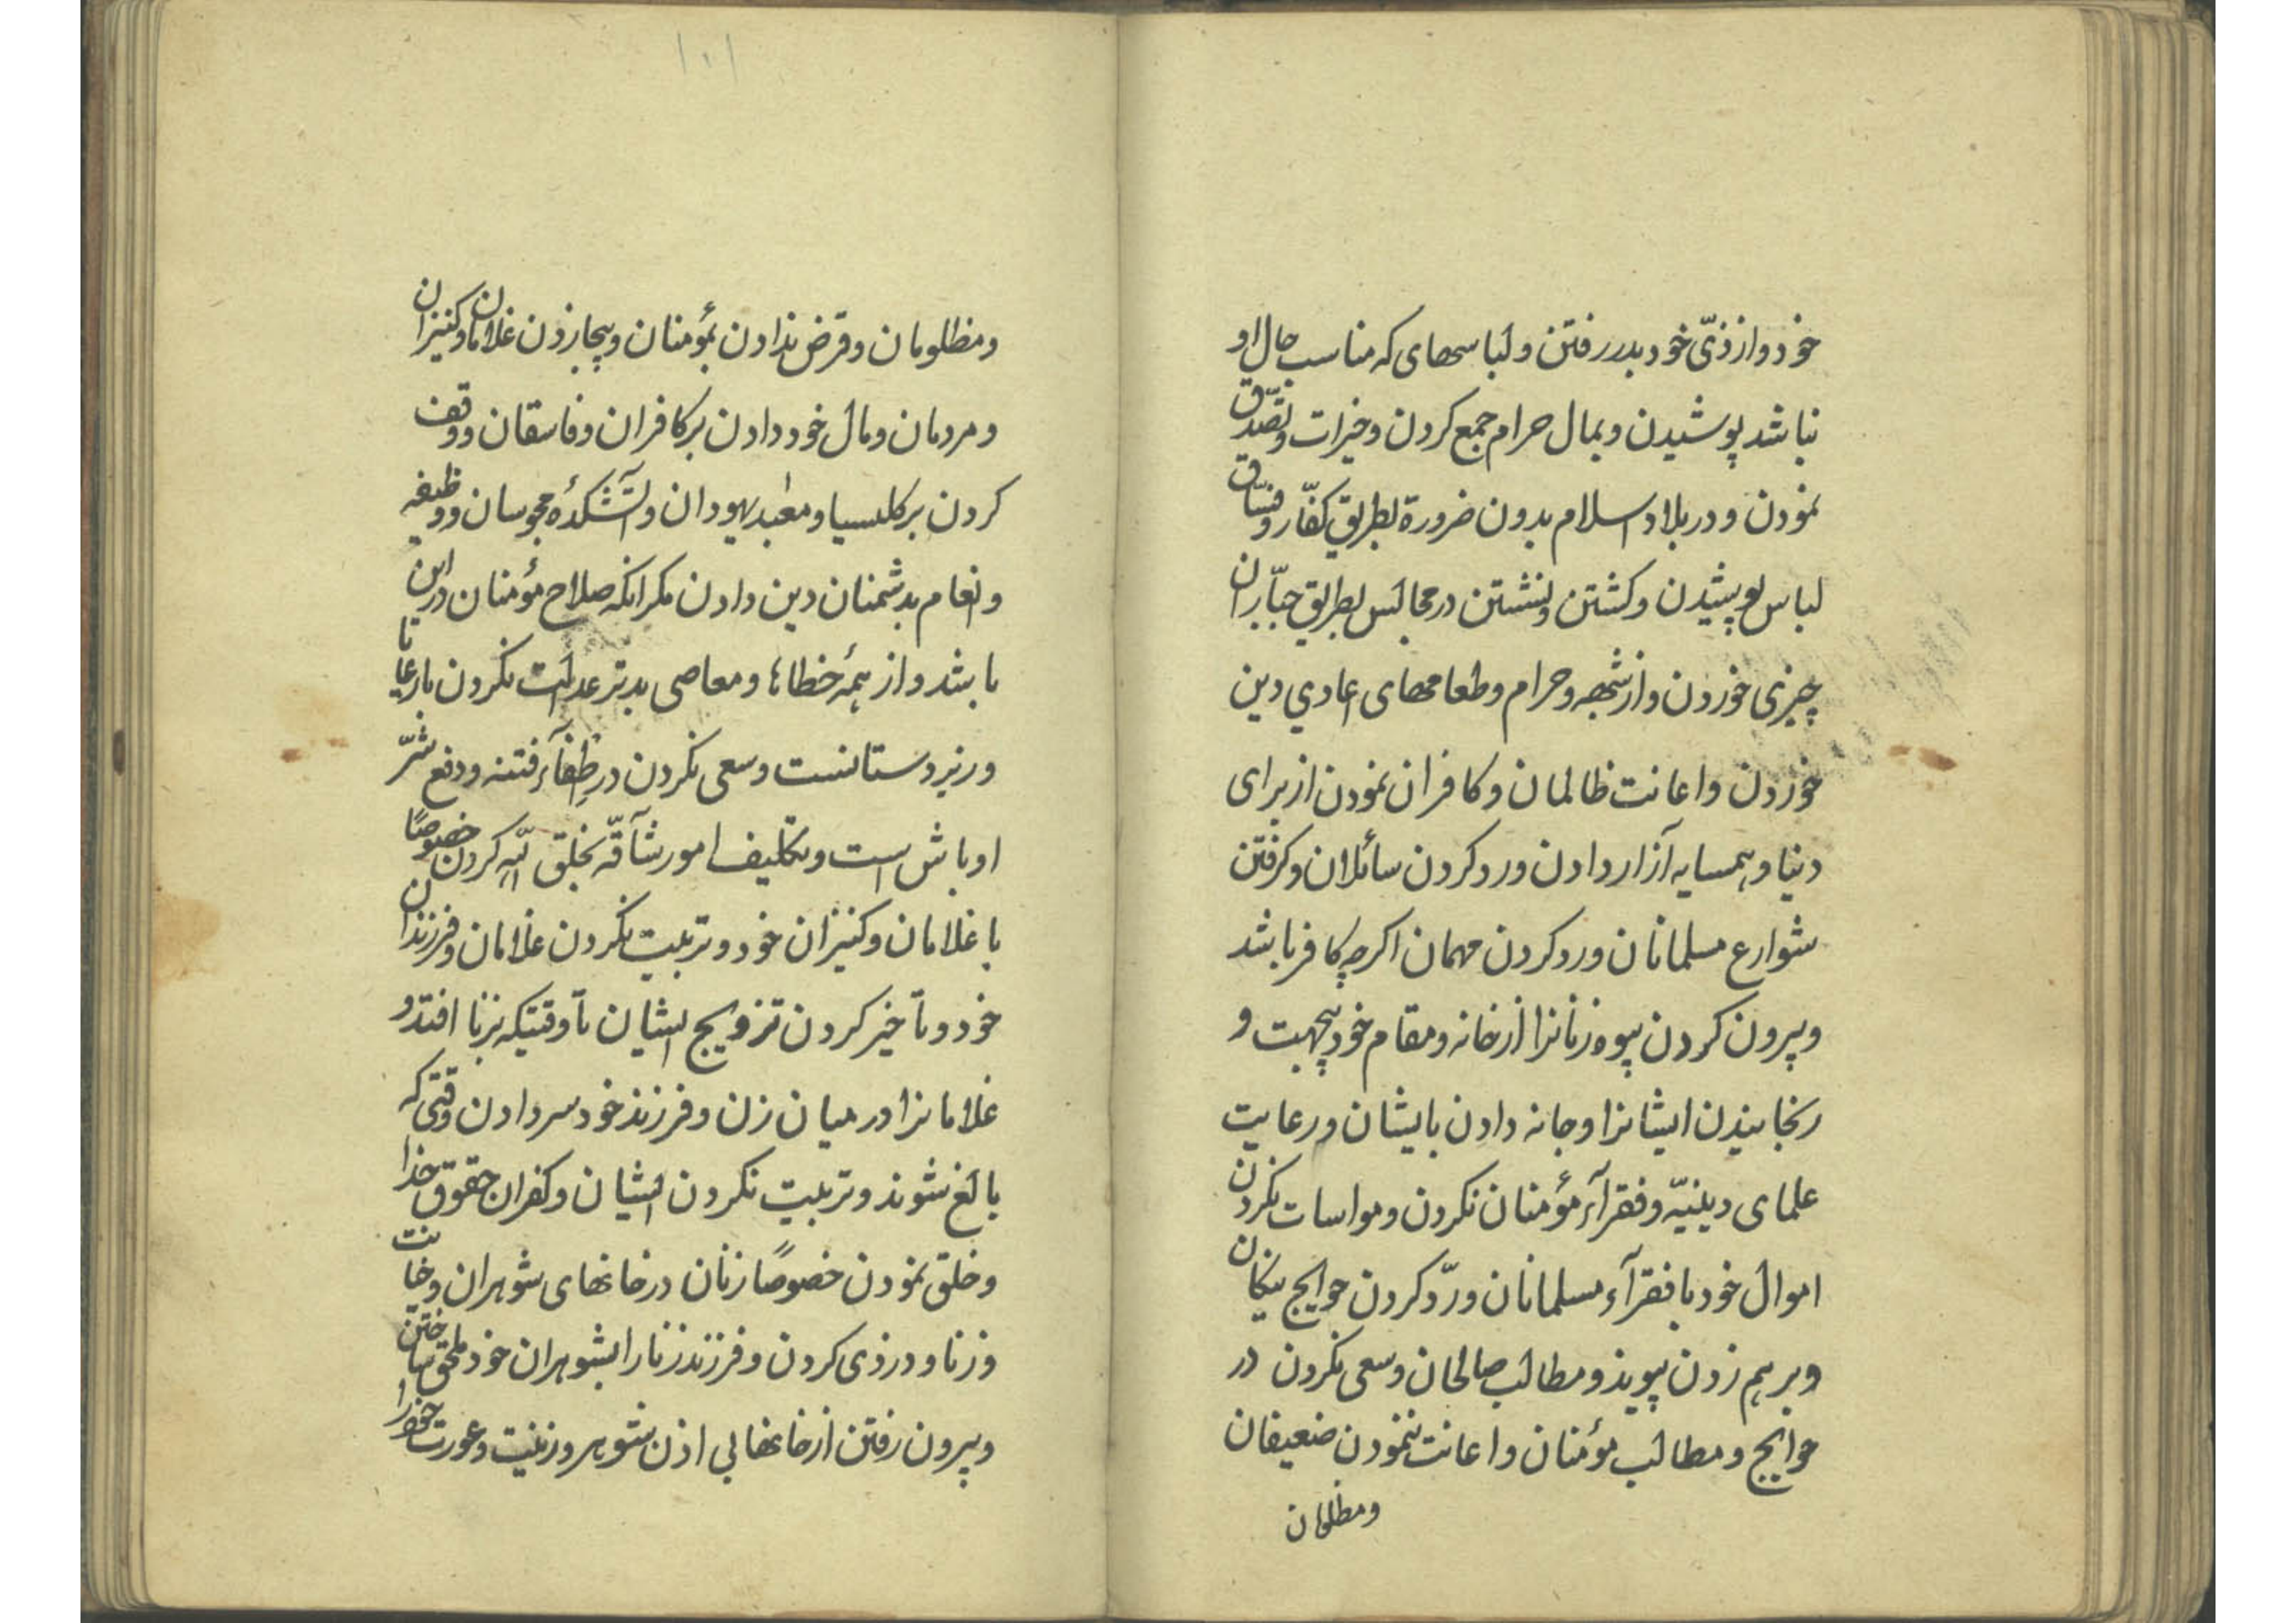 خود و از ذیّ خود بدر رفتن و لباسهای که مناسب حال او
نباشد پوشیدن و بمال حرام جمع کردن و خیرات و تصدّق
نمودن و در بلاد اسلام بدون ضرورة بطریق کفّار و فسّاق
لباس پوشیدن و کشتن و نشستن در مجالس بطریق جبّاران
چیزی خوردن و از شبهه و حرام و طعامهای اعادي دین
خوردن و اعانت ظالمان و کافران نمودن از برای
دنیا و همسایه آزار دادن و رد کردن سائلان و کرفتن
شوارع مسلمانان و رد کردن مهمان اکرچه کافر باشد
و بیرون کردن بیوه زنانرا از خانه و مقام خود بیجهت و
رنجانیدن ایشانرا و جا نه دادن بایشان و رعایت
علمای دینیّه و فقرآء مؤمنان نکردن و مواسات نکردن
اموال خود با فقرآء مسلمانان و ردّ کردن حوایج نیکان
و برهم زدن پیوند و مطالب صالحان و سعی نکردن در
حوایج و مطالب مؤمنان و اعانت ننمودن ضعیفان
و مظلومان
۱۰۱
و مظلومان و قرض ندادن بمؤمنان و بیجا زدن غلامان و کنیزان
و مردمان و مال خود دادن بر کافران و فاسقان و وقف
کردن بر کلیسیا و معبد یهودان و آتشکدهٔ مجوسان و وظیفه
و انعام بدشمنان دین دادن مکر انکه صلاح مؤمنان در این
باشد و از همهٔ خطاها و معاصی بدتر عدالت نکردن با رعایا
و زیردستانست و سعی نکردن در اطفآء فتنه و دفع شرّ
اوباش است و تکلیف امور شآقّه بخلق الله کردن خصوصًا
با غلامان و کنیزان خود و تربیت نکردن غلامان و فرزندان
خود و تأخیر کردن تزویج ایشان تا وقتیکه بزنا افتد و
غلامانرا در میان زن و فرزند خود سر دادن وقتی که
بالغ شوند و تربیت نکردن ایشان و کفران حقوق خدا
و خلق نمودن خصوصًا زنان در خانهای شوهران و خیانت
و زنا و دزدی کردن و فرزند زنا را بشوهران خود ملحق ساختن
و بیرون رفتن از خانها بی اذن شوهر و زینت و عورت خود را